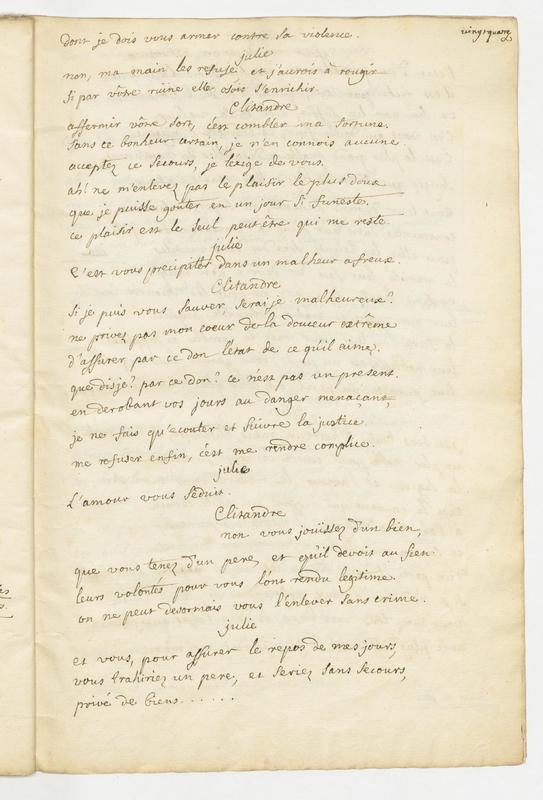 vingt quatre
dont je dois vous armer contre sa violence.
julie
non, ma main les refuse et j'aurois à rougir
si par vôtre ruine elle osoit s'enrichir.
Clitandre
affermir vôtre sort, c'est combler ma fortune.
sans ce bonheur certain, je n'en connois aucune.
acceptez ce secours, je l'exige de vous.
ah! ne m'enlevez pas le plaisir le plus doux
que je puisse goûter en un jour si funeste.
ce plaisir est le seul peut être qui me reste.
julie
C'est vous precipiter dans un malheur afreux.
Clitandre
Si je puis vous sauver, serai je malheureux?
ne privez pas mon coeur de la douceur extrême
d'assurer par ce don l'état de ce qu'il aime.
que dis je? par ce don? ce n'est pas un present.
en derobant vos jours au danger menaçant,
je ne fais qu'ecouter et suivre la justice.
me refuser enfin, c'est me rendre complice.
julie
L'amour vous seduit.
Clitandre
non vous joüissez d'un bien,
que vous tenez d'un pere, et qu'il devoit au sien.
leurs volontés pour vous l'ont rendu legitime.
on ne peut desormais vous l'enlever sans crime.
julie
et vous, pour assurer le repos de mes jours,
vous trahiriez un pere, et seriez sans secours,
privé de biens......